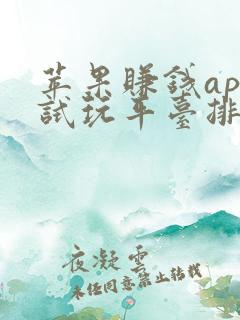 苹果賺錢ap
試玩平臺排
夜凝雲
未经同意禁止转载